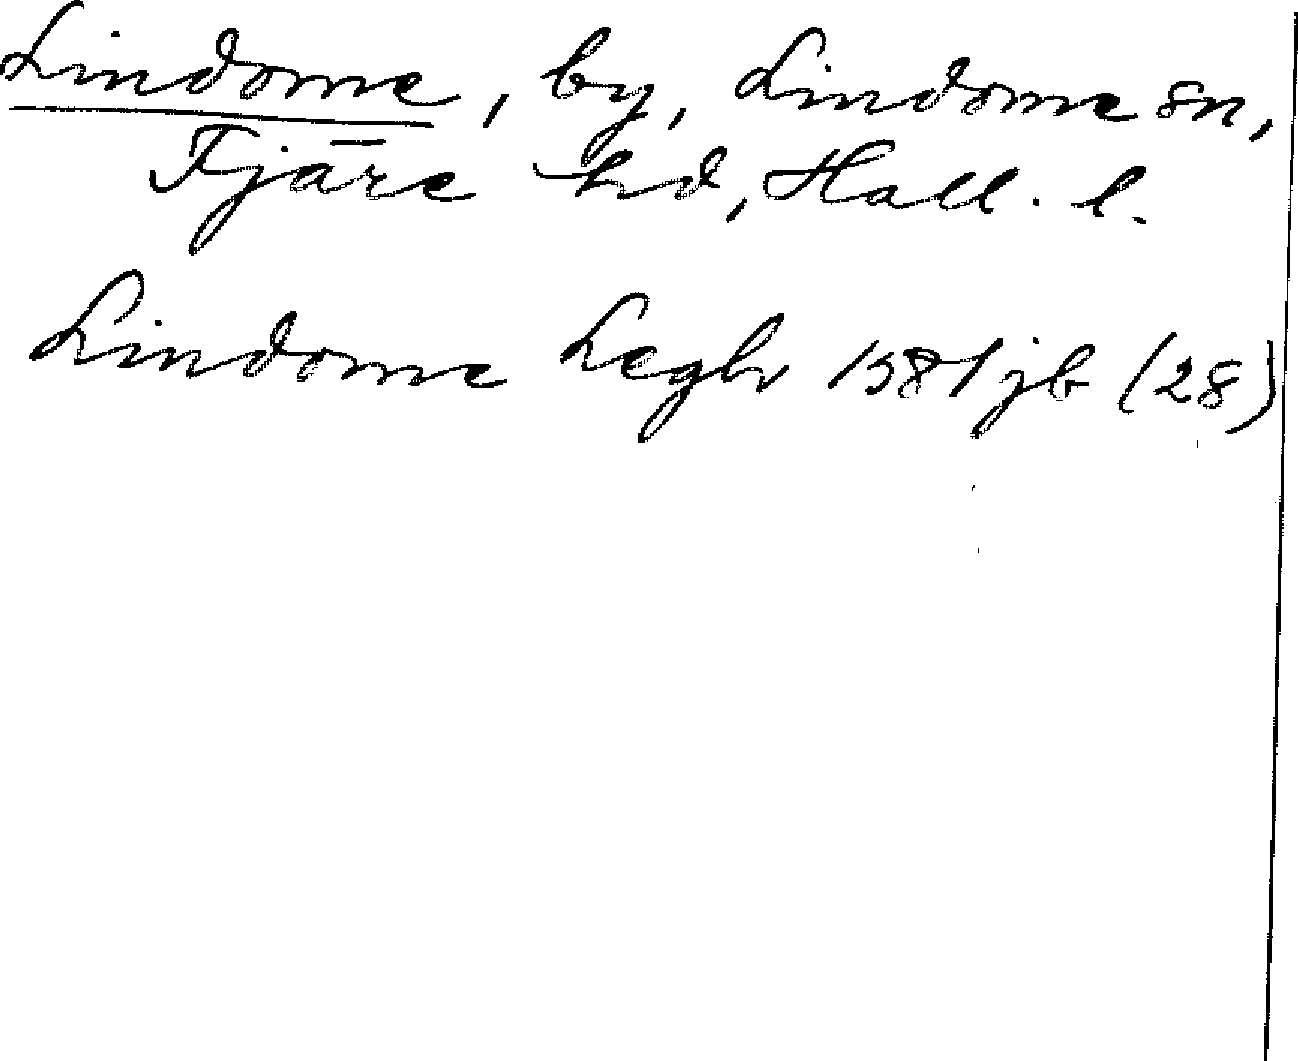 Lindome, by, Lindome sn,
Fjäre hd, Hall. l.
Lindome Leghr 1581 jb (28)